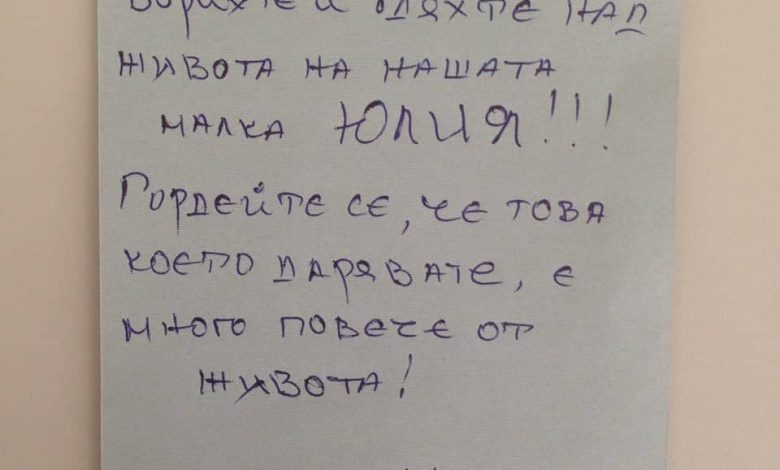 Борихте и бдяхте над
живота на нашата
малка ЮЛИЯ!!!
Гордейте се, че това
което дарявате, е
много повече от
живота!